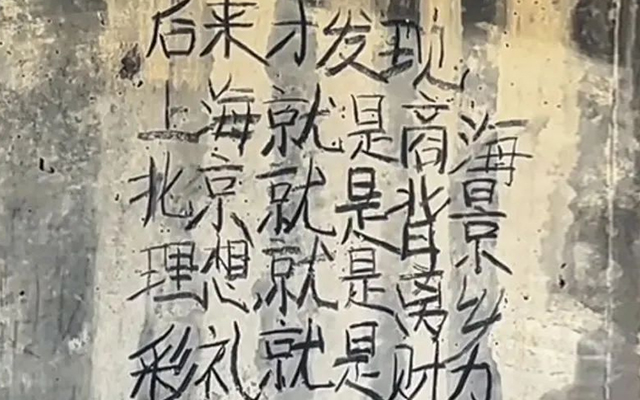 后来才发现
上海就是商海
北京就是背景
理想就是离乡
彩礼就是财力